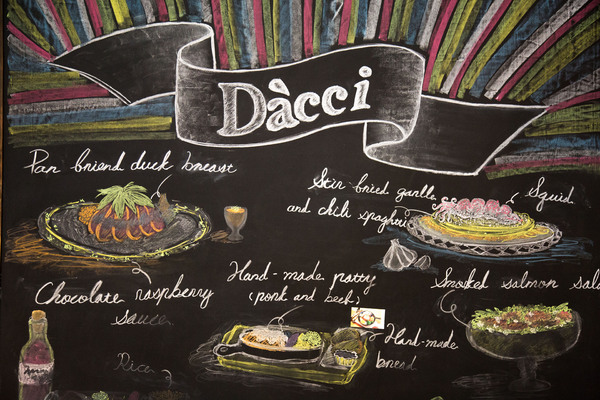 Dàcci
Pan briend duck breast
Stir-bried garlle
and chili spagheti
Squid
Chocolate raspberry
sauce
Hand-made patty
(pork and beef)
Smoked salmon sala
Hand-made
bread
Rice